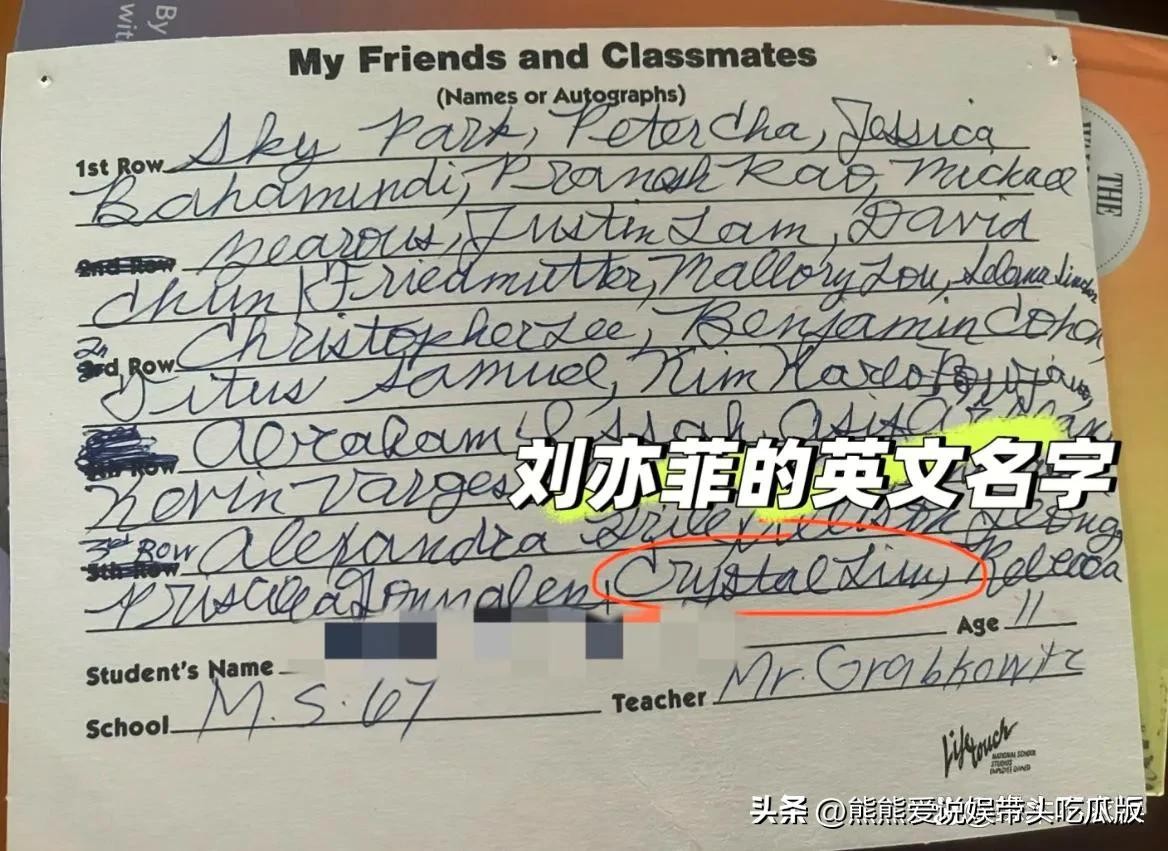 By
wit
My Friends and Classmates
(Names or Autographs)
1st Row Sky Park, Peter Cha, Jessica
Bahamundi, Pranesh Rao, Michael
2nd Row Searous, Justin Lam, David
Chun Friedmutter, Mallory Lou, Selena
2n 3rd Row Christopher Lee, Benjamin Cohen,
Titus Samuel, Kim Karlo
4th Row Abraham
Kevin Varges
3rd Row 5th Row Alexandra Leong
Priscilla Crystal Liu, Rebecca
刘亦菲的英文名字
Age 11
Student's Name
School M.S. 67 Teacher Mr. Grabkowitz
Lifetouch
NATIONAL SCHOOL
STUDIOS
EMPLOYEE OWNED
THE
头条 @熊熊爱说娱带头吃瓜版